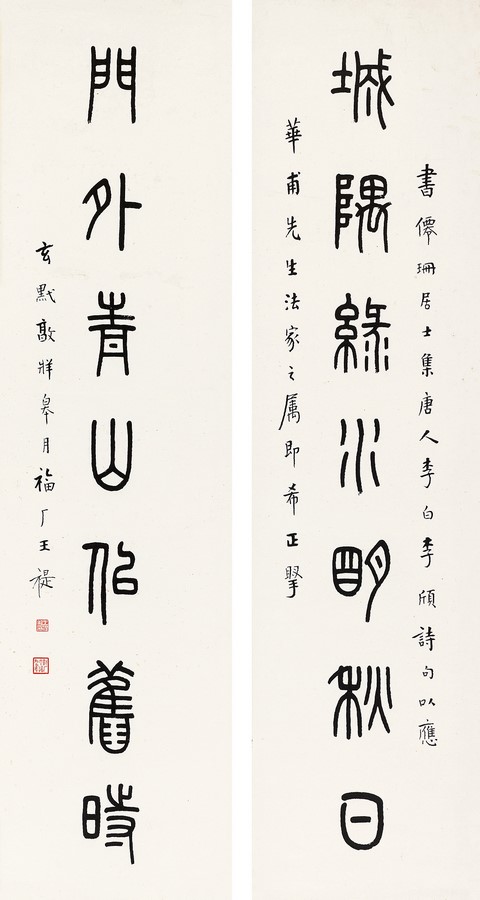 書僊珊居士集唐人李白李頎詩句以應
城隅綠水明秋日
華甫先生法家之属即希正掔
門外青山似舊時
玄黓敦牂皋月福厂王禔